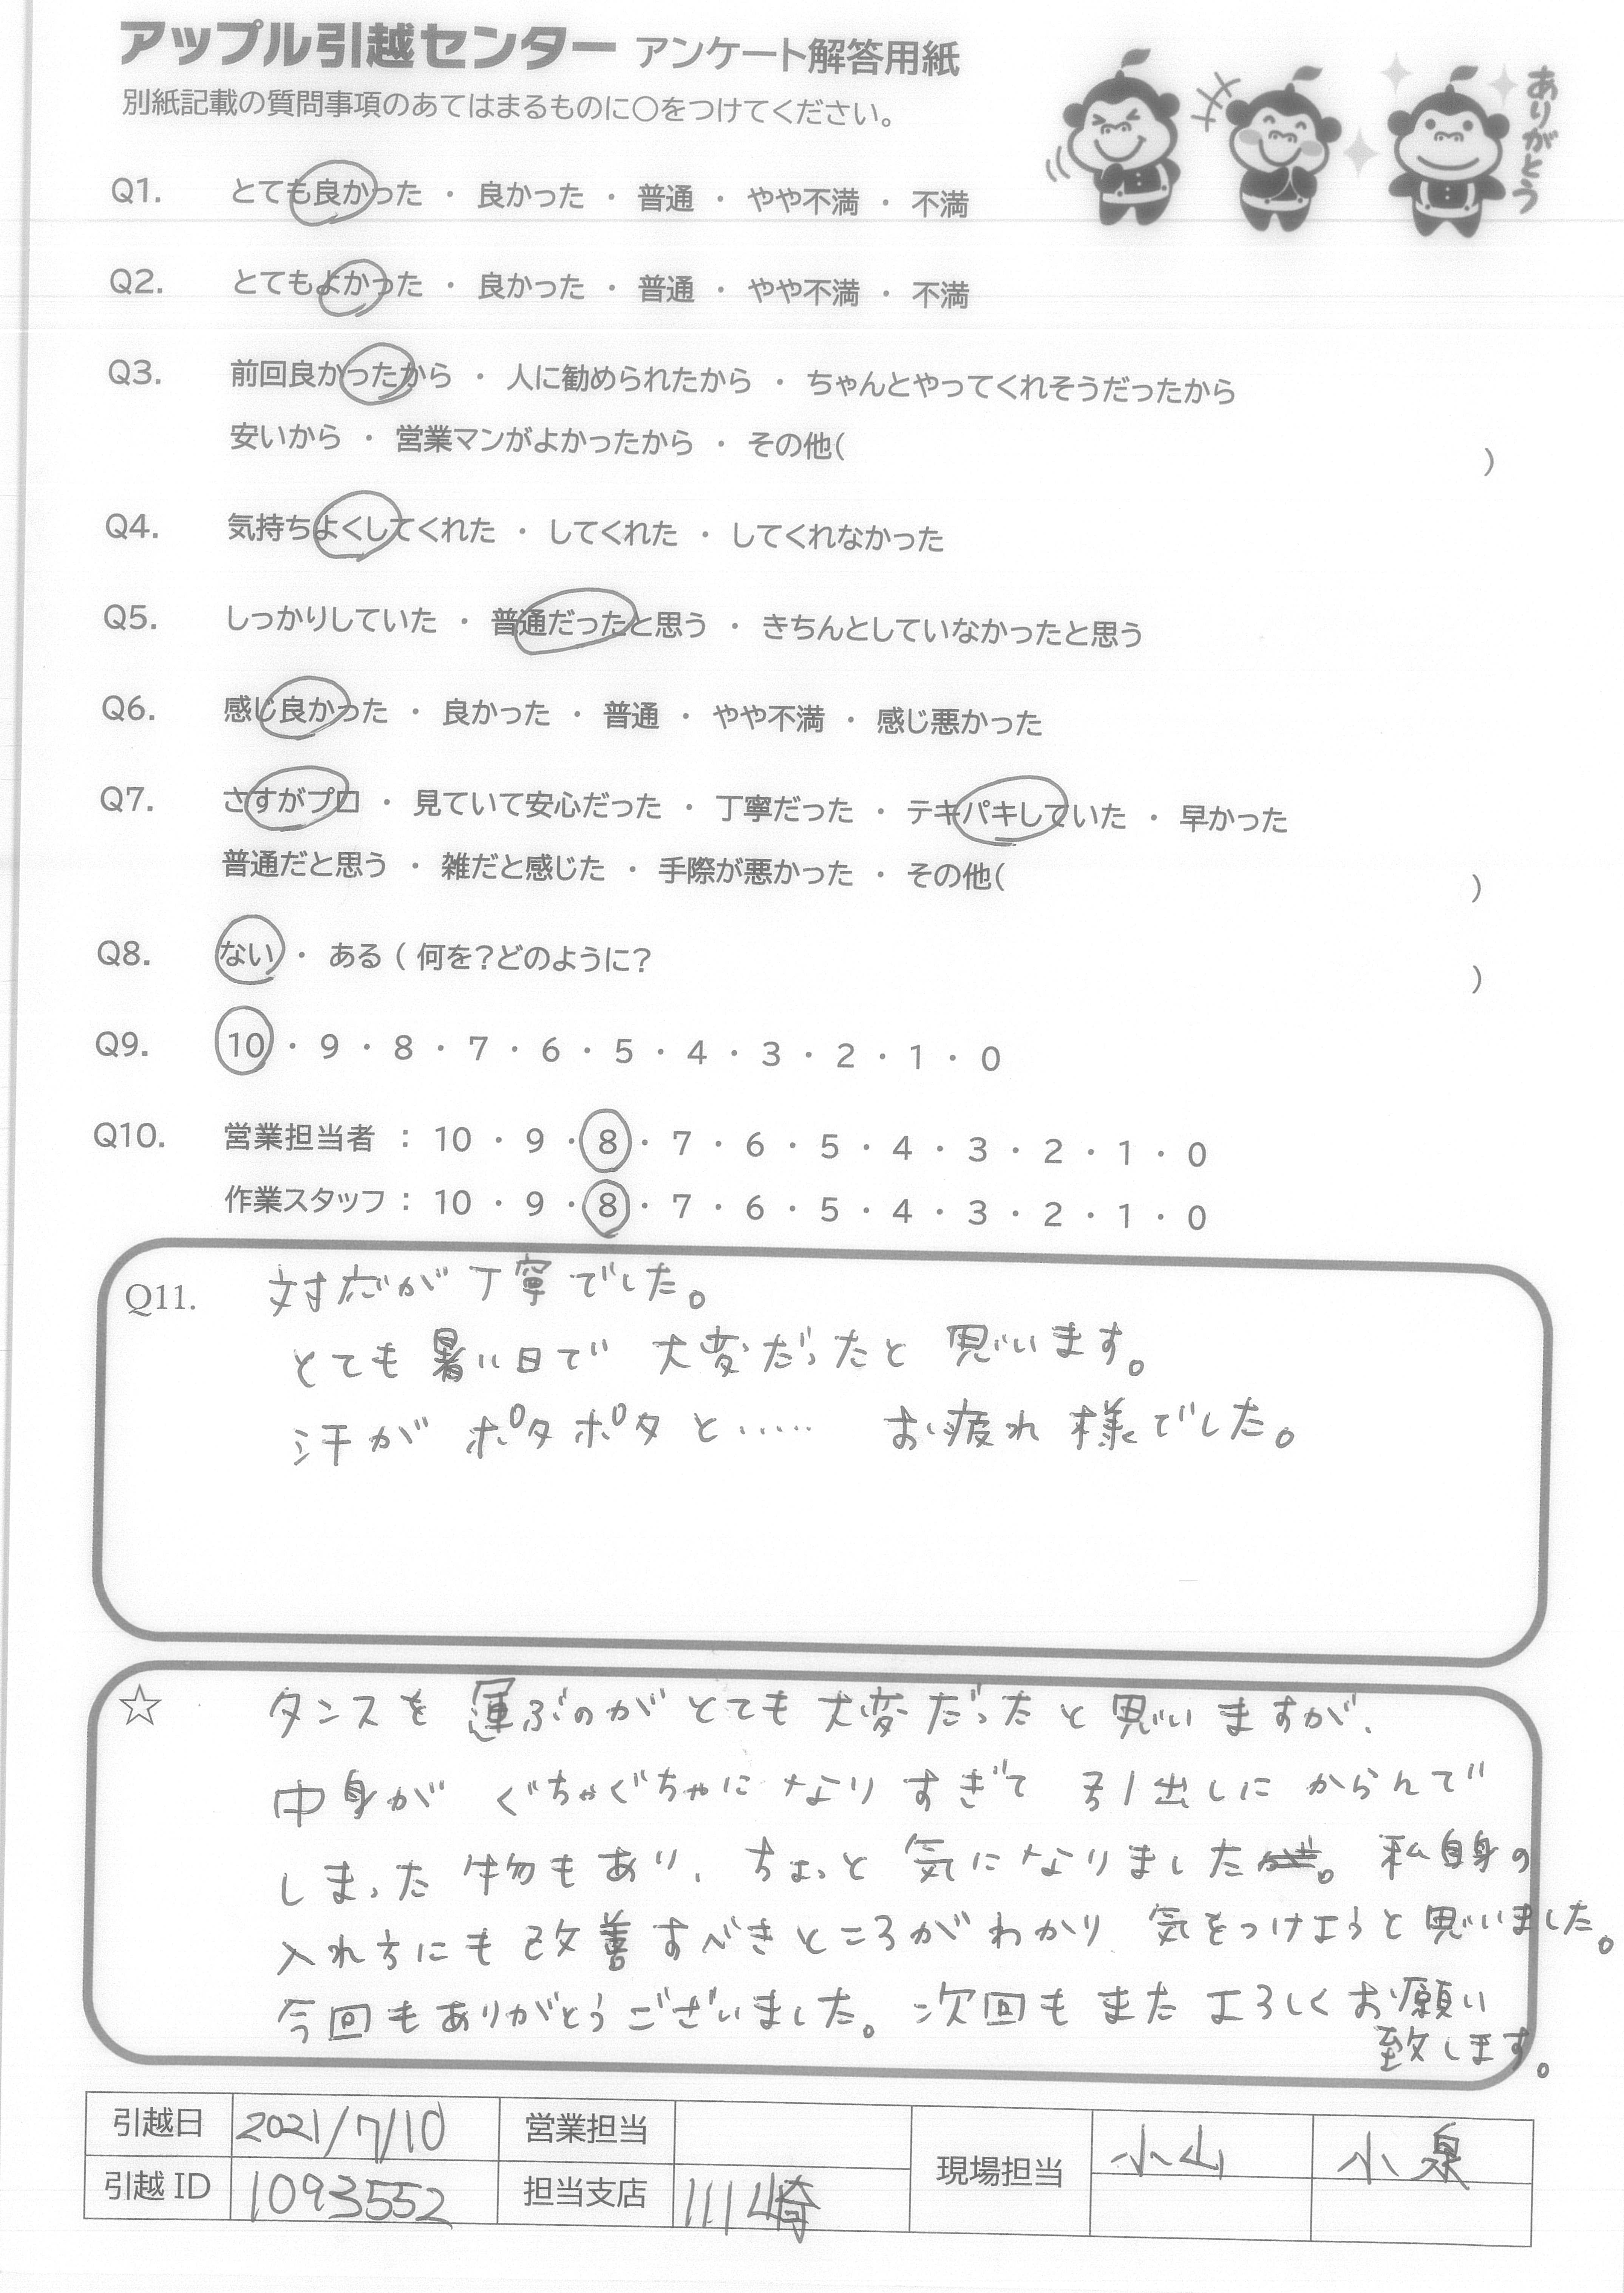 アップル引越センター アンケート解答用紙
別紙記載の質問事項のあてはまるものに〇をつけてください。
ありがとう
Q1. とても良かった ・ 良かった ・ 普通 ・ やや不満 ・ 不満
Q2. とてもよかった ・ 良かった ・ 普通 ・ やや不満 ・ 不満
Q3. 前回良かったから ・ 人に勧められたから ・ ちゃんとやってくれそうだったから
安いから ・ 営業マンがよかったから ・ その他( )
Q4. 気持ちよくしてくれた ・ してくれた ・ してくれなかった
Q5. しっかりしていた ・ 普通だったと思う ・ きちんとしていなかったと思う
Q6. 感じ良かった ・ 良かった ・ 普通 ・ やや不満 ・ 感じ悪かった
Q7. さすがプロ ・ 見ていて安心だった ・ 丁寧だった ・ テキパキしていた ・ 早かった
普通だと思う ・ 雑だと感じた ・ 手際が悪かった ・ その他( )
Q8. ない ・ ある ( 何を?どのように? )
Q9. 10 ・ 9 ・ 8 ・ 7 ・ 6 ・ 5 ・ 4 ・ 3 ・ 2 ・ 1 ・ 0
Q10. 営業担当者 : 10 ・ 9 ・ 8 ・ 7 ・ 6 ・ 5 ・ 4 ・ 3 ・ 2 ・ 1 ・ 0
作業スタッフ : 10 ・ 9 ・ 8 ・ 7 ・ 6 ・ 5 ・ 4 ・ 3 ・ 2 ・ 1 ・ 0
Q11. 対応が丁寧でした。
とても暑い日で 大変だったと思います。
汗が ポタポタと…… お疲れ様でした。
☆ タンスを運ぶのがとても大変だったと思いますが、
中身が ぐちゃぐちゃになりすぎて 引出しにからんで
しまった物もあり、ちょっと気になりました。私自身の
入れ方にも改善すべきところがわかり 気をつけようと思いました。
今回もありがとうございました。次回もまたよろしくお願い
致します。
引越日 2021/7/10 営業担当 現場担当 小山 小泉
引越 ID 1093552 担当支店 川崎